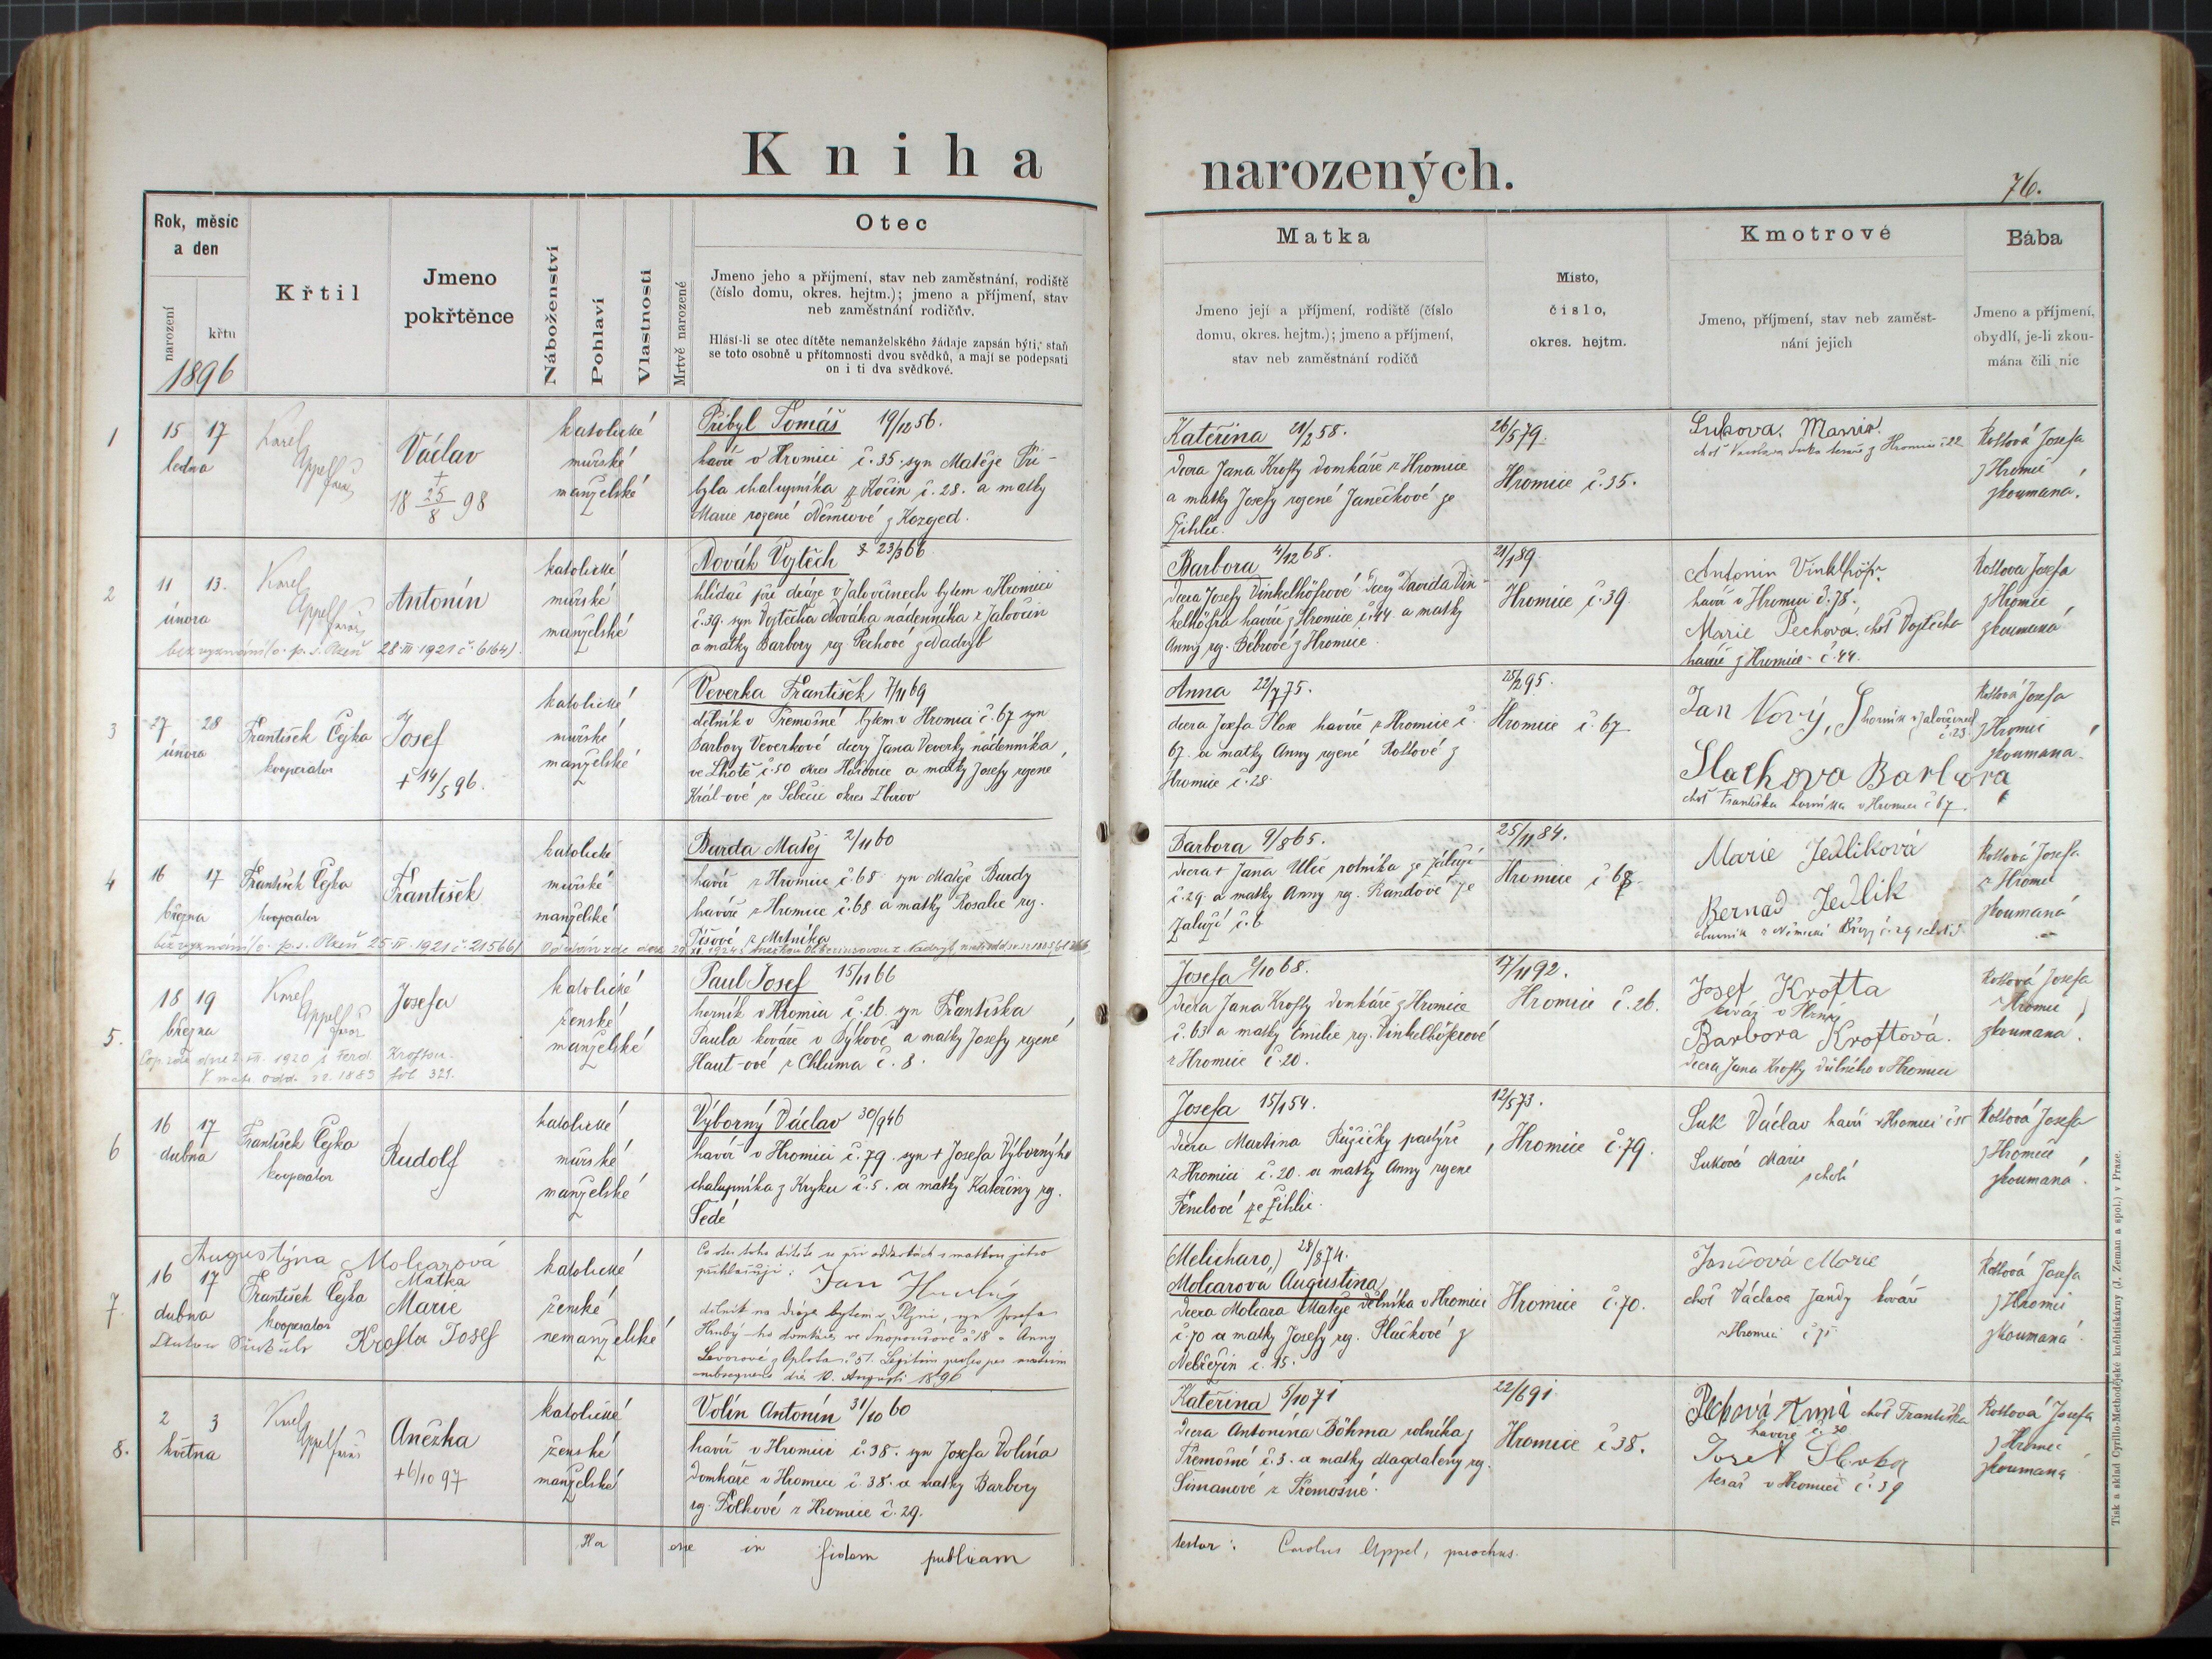 Kniha narozených.
76.
Rok, měsíc
a den
narození
křtu
1896
Křtil
Jmeno
pokřtěnce
Náboženství
Pohlaví
Vlastnosti
Mrtvě narozené
Otec
Jmeno jeho a příjmení, stav neb zaměstnání, rodiště
(číslo domu, okres. hejtm.); jmeno a příjmení, stav
neb zaměstnání rodičův.
Hlásí-li se otec dítěte nemanželského žádaje zapsán býti, staň
se toto osobně u přítomnosti dvou svědků, a mají se podepsati
on i ti dva svědkové.
Matka
Jmeno její a příjmení, rodiště (číslo
domu, okres. hejtm.); jmeno a příjmení,
stav neb zaměstnání rodičů
Místo,
číslo,
okres. hejtm.
Kmotrové
Jmeno, příjmení, stav neb zaměst-
nání jejich
Bába
Jmeno a příjmení,
obydlí, je-li zkou-
mána čili nic
1
15 17
ledna
Karel
Appel
farář
Václav
+
18 25/8 98
katolické
mužské
manželské
Přibyl Tomáš 19/12 56.
havíř v Hromici č. 35 syn Matěje Při-
byla chalupníka z Kočín č. 28. a matky
Marie rozené Němcové z Kozojed.
Kateřina 21/2 58.
dcera Jana Krofty domkáře z Hromice
a matky Josefy rozené Janečkové ze
Žihlic.
26/5 79.
Hromice č. 35.
Sukova. Marie.
choť Václava Suka z Hromic č 22
Kottová Josefa
z Hromic
zkoumaná.
2
11 13.
února
Karel
Appel
farář
Antonín
bez vyznání (o. p. s. Plzeň 28. III. 1921 č. 6164).
katolické
mužské
manželské
Novák Vojtěch 23/3 66
hlídač při dráze v Jalovčinech bytem v Hromici
č. 39. syn Vojtěcha Nováka nádenníka z Jalovčin
a matky Barbory roz. Pechové z Nadryb
Barbora 4/12 68.
dcera Josefy Vinkelhöfrové dcery Davida Vin-
kelhöfra havíře z Hromice č. 44 a matky
Anny roz. Bébrové z Hromice.
21/1 89.
Hromice č. 39.
Antonin Vinklhöfr
havíř v Hromici č. 78.
Marie Pechová. choť Vojtěcha
havíře z Hromice č. 44.
Kottova Josefa
z Hromic
zkoumaná
3
27 28
února
František Čejka
kooperator
Josef
+ 14/5 96.
katolické
mužské
manželské
Veverka František 7/11 69
dělník v Třemošné bytem v Hromici č. 67 syn
Barbory Veverkové dcery Jana Veverky nádenníka
ve Lhotě č. 50 okres Hořovice a matky Josefy rozené
Král-ové ze Sebečic okres Zbirov
Anna 22/7 75.
dcera Josefa havíře z Hromice č.
67. a matky Anny rozené Kottové z
Hromice č. 28.
25/2 95.
Hromice č. 67
Jan Nový, horník v Jalovčinech
č. 23.
Slachova Barbora
choť Františka horníka v Hromici č 67.
Kottová Josefa
z Hromic
zkoumaná.
4
16 17
března
František Čejka
kooperator
František
bez vyznání (o. p. s. Plzeň 25. IV. 1921 č. 21566)
katolické
mužské
manželské
Burda Matěj 2/11 60
havíř z Hromice č. 68 syn Matěje Burdy
havíře z Hromice č. 68. a matky Rosalie roz.
Píšové z Mrtníka
Barbora 9/8 65.
dcera + Jana Ulče rolníka ze Záluží
č. 29. a matky Anny roz. Bandové ze
Záluží č. 6
25/11 84.
Hromice č 68.
Marie Jedliková
Bernad Jedlik
Kottová Josefa.
z Hromic
zkoumaná
5.
18 19
března
Karel
Appel
farář
Josefa
Cop. zde dne 2. VII. 1920 s Ferd. Kroftou.
V matr. odd. zz. 1883 fol. 321.
katolické
ženské
manželské
Paul Josef 15/11 66
horník v Hromici č. 26. syn Františka
Paula kováře v Býkově, a matky Josefy rozené
Haut-ové z Chluma č. 8.
Josefa 2/10 68.
dcera Jana Krofty domkáře z Hromice
č. 63 a matky Emilie roz. Vinkelhöfrové
z Hromice č. 20.
17/11 92.
Hromice č. 26.
Josef Krofta
kovář v
Barbora Kroftová.
dcera Jana Krofty důlního v Hromici
Kottová Josefa
z Hromic
zkoumaná.
6
16 17
dubna
František Čejka
kooperator
Rudolf
katolické
mužské
manželské
Výborný Václav 30/9 46
havíř v Hromici č. 79. syn + Josefa Výborného
chalupníka z Kryku č. 5. a matky Kateřiny roz.
Šedé
Josefa 15/1 54.
dcera Martina Růžičky pastýře
z Hromici č. 20. a matky Anny rozené
Fenclové ze Žihlic.
12/5 73.
Hromice č. 79.
Suk Václav havíř v Hromici
Suková Marie
choť
Kottová Josefa
z Hromic
zkoumaná.
7.
Augustýna Molcarová
Matka
16 17
dubna
František Čejka
kooperator
Marie
Krofta Josef
katolické
ženské
nemanželské
Co otec toho dítěte se při oddavkách s matkou jeho
přihlašuji: Jan Hrubý
dělník na dráze bytem v Plzni, syn Josefa
Hrubý-ho domkáře ve Šnopoušově č 18 a Anny
Levorové z Oplota č 51. Legitim proles per matrim
subsequens die 10. Augusti 1896
Melicharo,) 28/8 74.
Molcarova Augustina
dcera Molcara Matěje dělníka v Hromici
č. 70 a matky Josefy roz. Plačkové z
Nebřežin č. 15.
Hromice č. 70.
Jandová Marie
choť Václava Jandy kováře
v Hromici
Kottová Josefa
z Hromic
zkoumaná.
8.
2 3
května
Karel
Appel
farář
Anežka
+ 6/10 97
katolické
ženské
manželské
Volín Antonín 31/10 60
havíř v Hromici č. 38. syn Josefa Volína
domkáře v Hromici č. 38. a matky Barbory
roz. Folkové z Hromice č. 29.
Kateřina 5/10 71
dcera Antonína Böhma rolníka z
Třemošné č. 3. a matky Magdaleny roz.
Šimanové z Třemošné.
22/6 91.
Hromice č 38.
Pechová Anna choť Františka
havíře č. 30
Josef
tesař v Hromici č. 39
Kottová Josefa
z Hromic
zkoumaná
Hocce in fidem publicam
testor: Carolus Appel, parochus.
Tisk a sklad Cyrillo-Methodějské knihtiskárny (J. Zeman a spol.) v Praze.